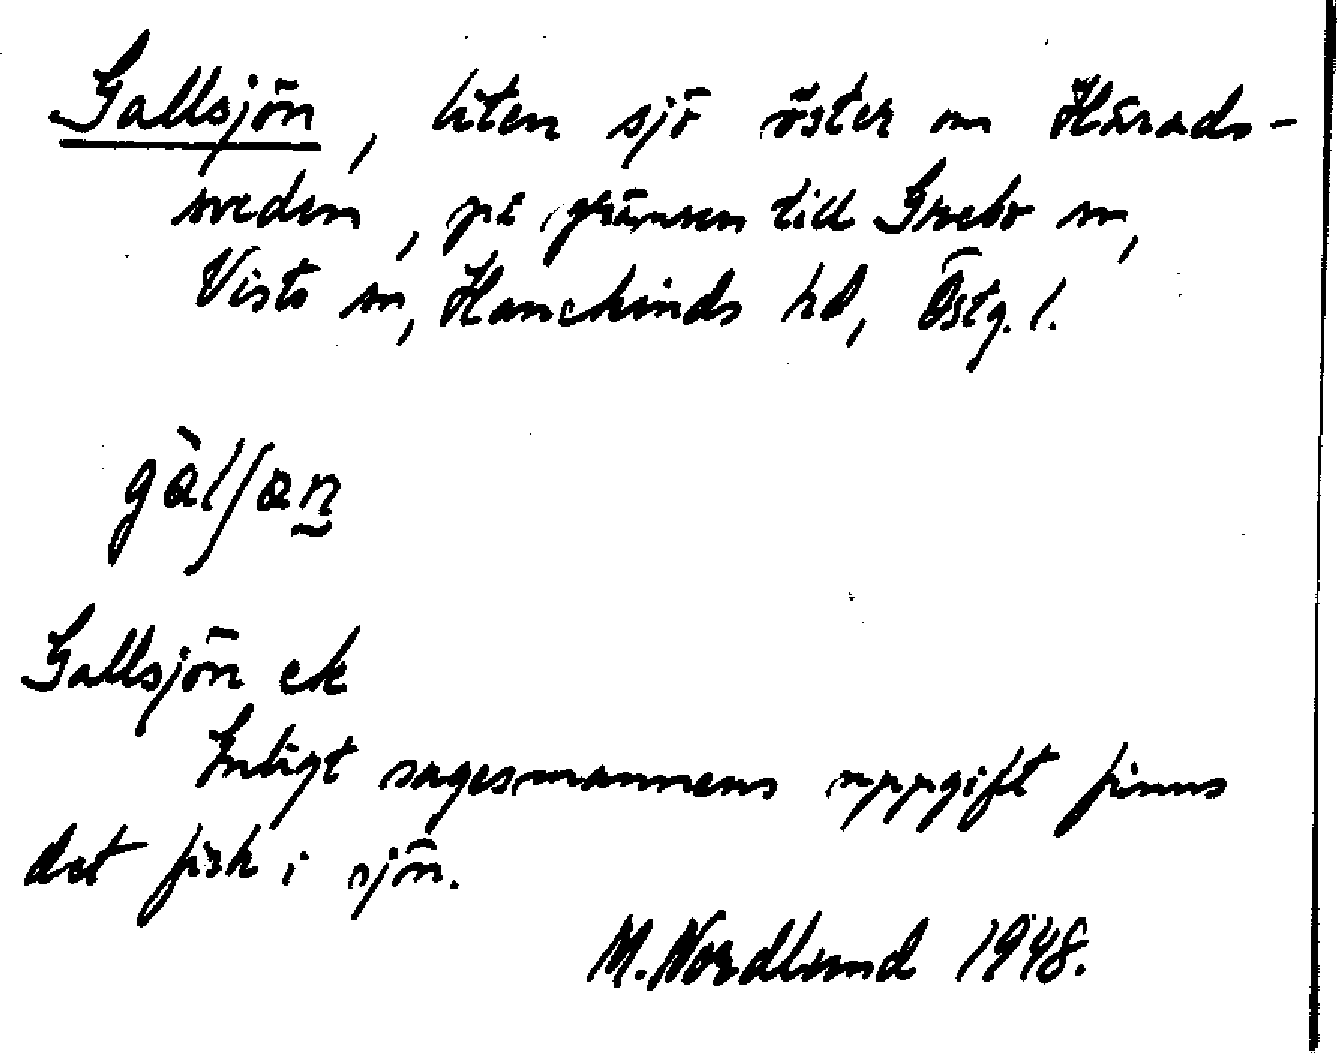 Gallsjön, liten sjö öster om Härads-
sveden, på gränsen till Grebo sn,
Vists sn, Hanekinds hd, Östg. l.
gàlʃøn̠
Gallsjön ek
Enligt sagesmannens uppgift finns
det fisk i sjön.
M. Nordlund 1948.